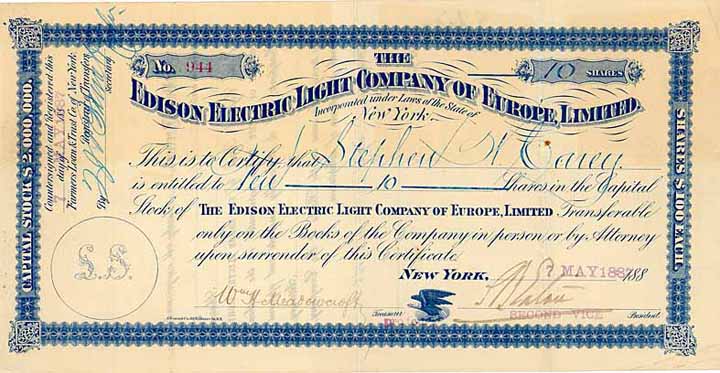 No. 944
THE
10 SHARES
EDISON ELECTRIC LIGHT COMPANY OF EUROPE, LIMITED.
Incorporated under Laws of the State of
New York.
This is to Certify that Stephen W Carey
is entitled to 10 Shares in the Capital
Stock of THE EDISON ELECTRIC LIGHT COMPANY OF EUROPE, LIMITED Transferable
only on the Books of the Company in person or by Attorney
upon surrender of this Certificate
NEW YORK, 7 MAY 1887 188
Wm H Meadowcroft
Treasurer
S B Eaton
SECOND VICE President
CAPITAL STOCK $2,000,000.
Countersigned and Registered this
7 day of MAY 1887
Farmers Loan & Trust Co. of New York
Registrar of Transfers
By
Secretary
L.S.
SHARES $100 EACH.